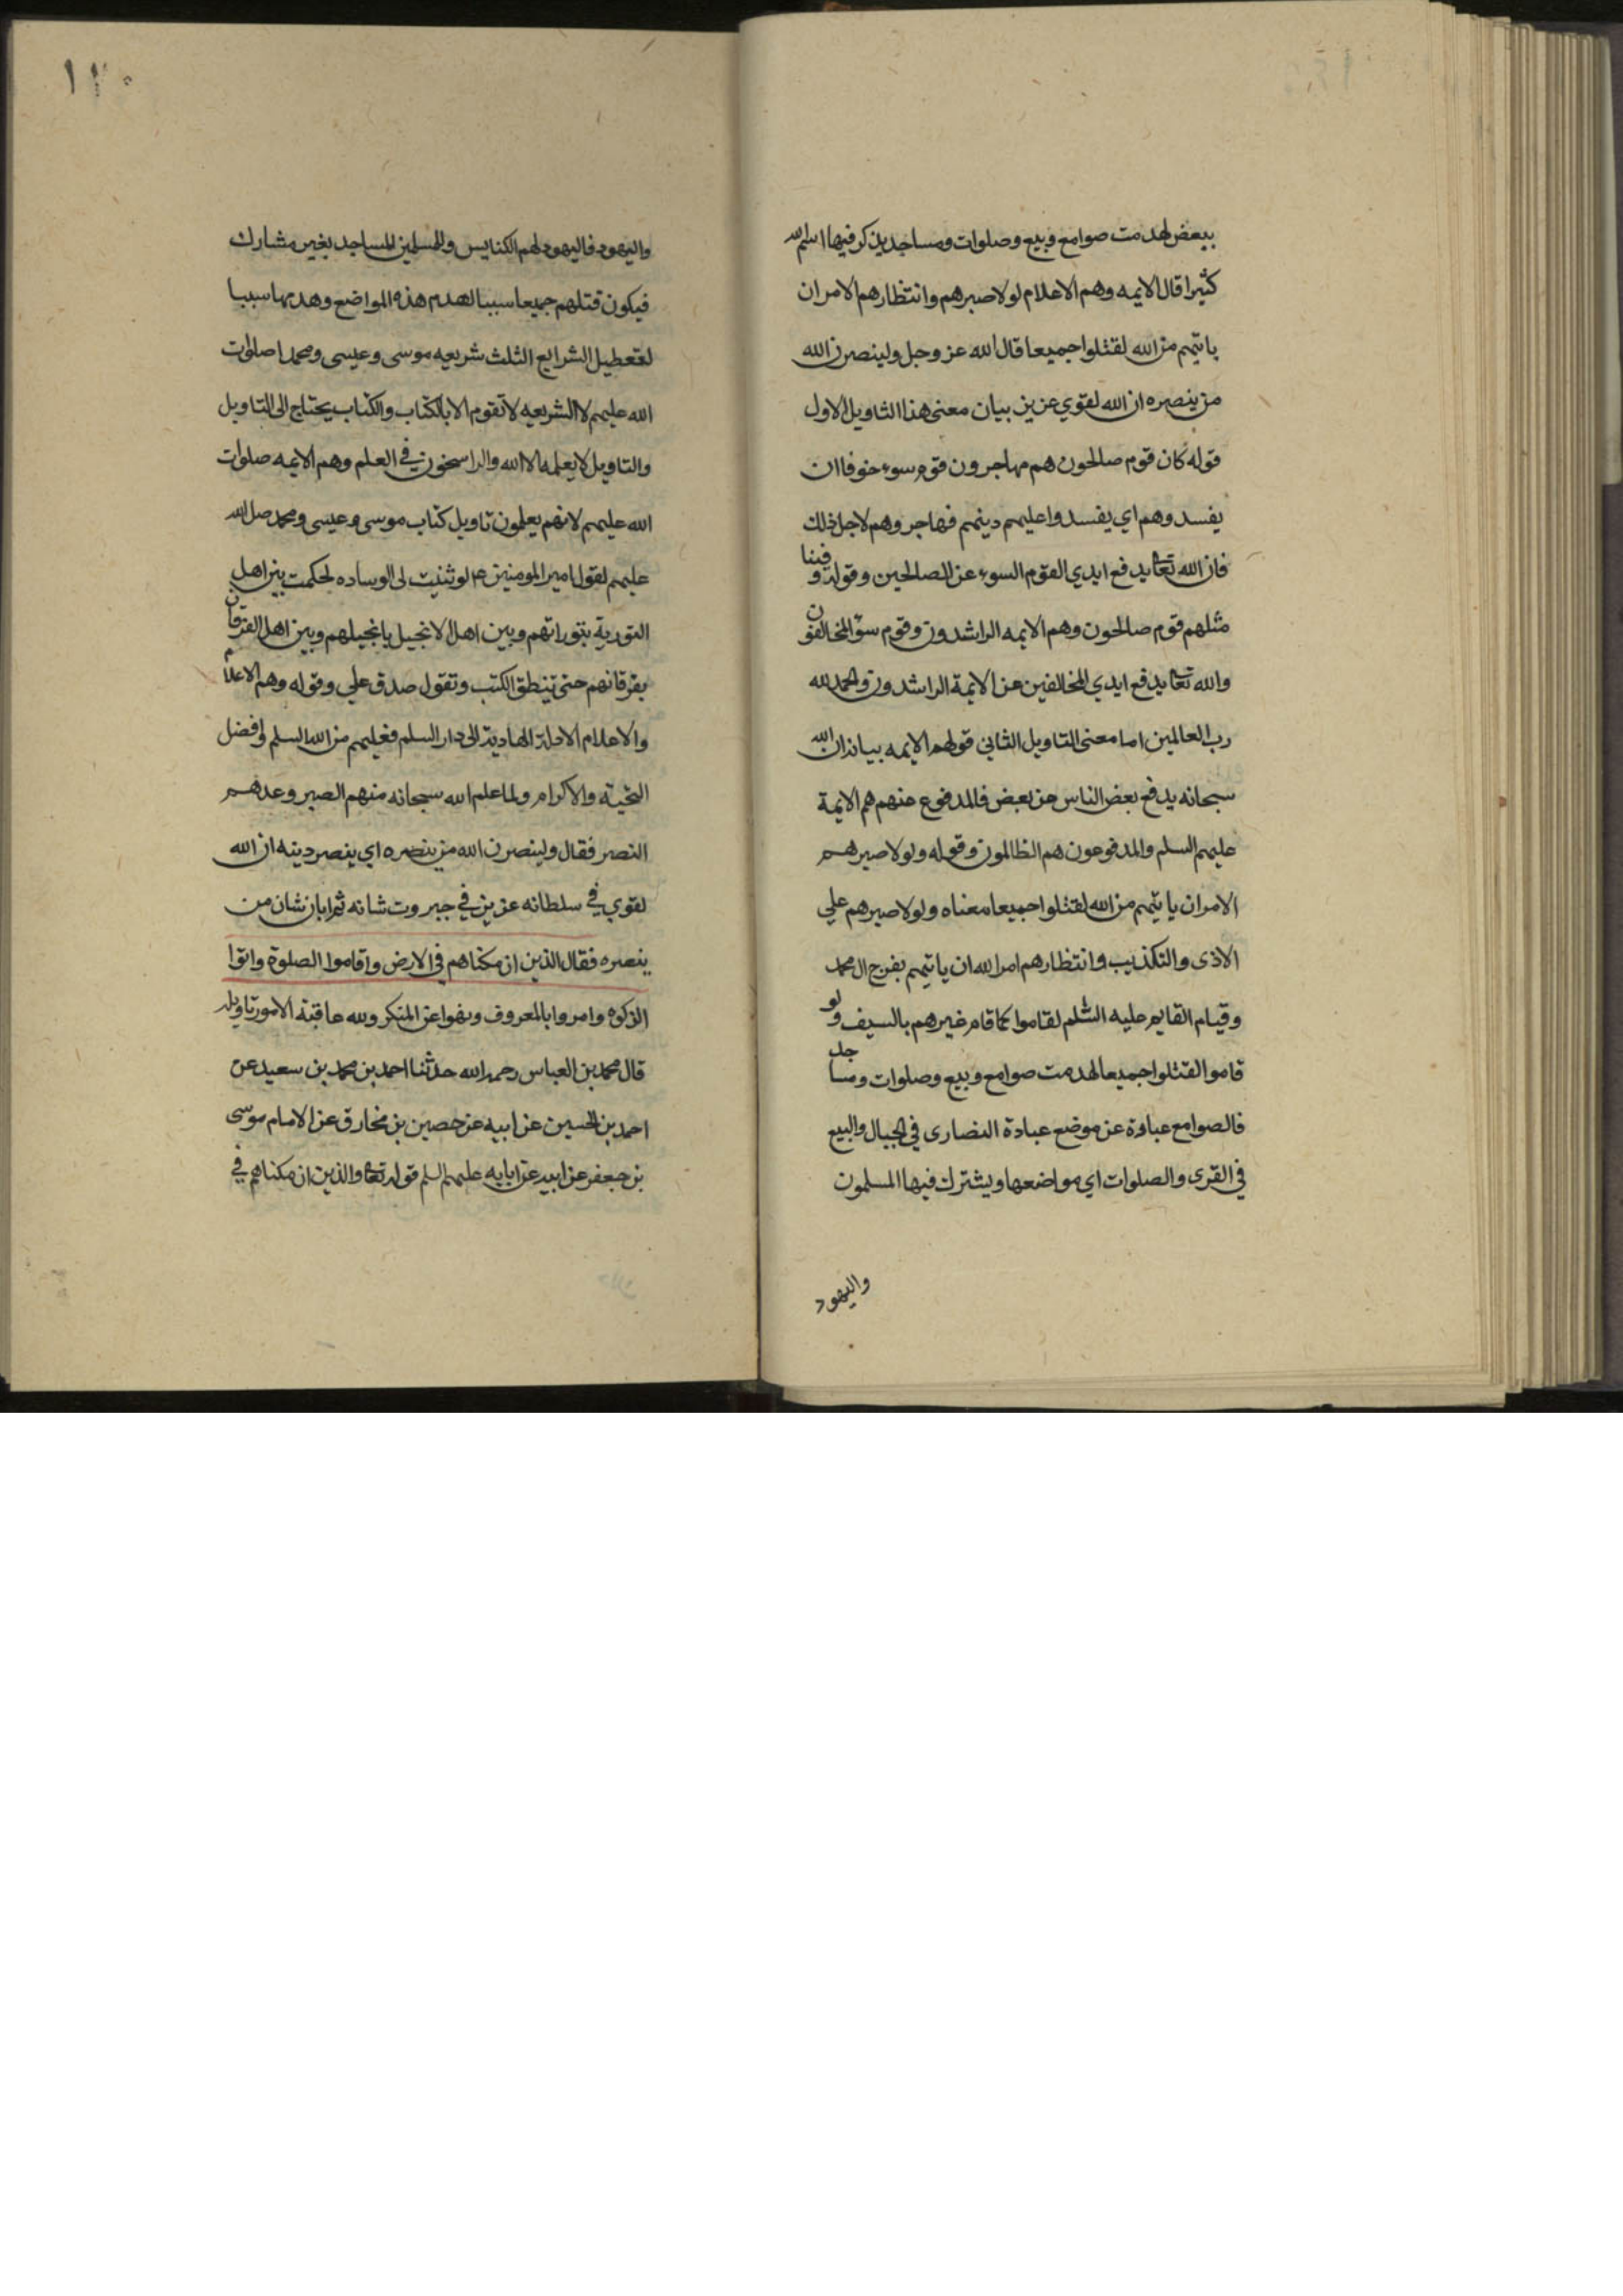 ببعض لهدمت صوامع وبيع وصلوات ومساجد يذكر فيها اسم الله
كثيرا قال الايمه وهم الاعلام لولا صبرهم وانتظارهم الامر ان
ياتيهم من الله لقتلوا جميعا قال الله عز وجل ولينصرن الله
من ينصره ان الله لقوي عزيز بيان معنى هذا التاويل الاول
قوله كان قوم صالحون هم مهاجرون قوم سوء خوفا ان
يفسدوهم اي يفسدوا عليهم دينهم فهاجروهم لاجل ذلك
فان الله تعالى يدفع ايدي القوم السوء عن الصالحين وقوله وفينا
مثلهم قوم صالحون وهم الايمه الراشدون وقوم سوء المخالفون
والله تعالى يدفع ايدي المخالفين عن الايمة الراشدون والحمد لله
رب العالمين اما معنى التاويل الثاني قولهم الايمه بيانه ان الله
سبحانه يدفع بعض الناس عن بعض فالمدفوع عنهم هم الايمة
عليهم السلم والمدفوعون هم الظالمون وقوله ولولا صبرهم
الامر ان ياتيهم من الله لقتلوا جميعا معناه ولولا صبرهم علي
الاذى والتكذيب وانتظارهم امر الله ان ياتيهم بفرج ال محمد
وقيام القايم عليه السلم لقاموا كما قام غيرهم بالسيف ولو
قاموا لقتلوا جميعا لهدمت صوامع وبيع وصلوات ومساجد
فالصوامع عبارة عن موضع عبادة النصارى في الجبال والبيع
في القرى والصلوات اي مواضعها ويشترك فيها المسلمون
واليهود
١٢٠
واليهود فاليهود لهم الكنايس والمسلمين المساجد بغير مشارك
فيكون قتلهم جميعا سببا لهدم هذه المواضع وهدمها سببا
لتعطيل الشرايع الثلث شريعه موسى وعيسى ومحمد صلوات
الله عليهم لا الشريعه لا تقوم الا بالكتاب والكتاب يحتاج الى التاويل
والتاويل لا يعلمه الا الله والراسخون في العلم وهم الايمه صلوات
الله عليهم لانهم يعلمون تاويل كتاب موسى وعيسى ومحمد صل الله
عليهم لقول امير المومنين ع لو ثنيت لى الوساده لحكمت بين اهل
التورية بتوراتهم وبين اهل الانجيل بانجيلهم وبين اهل الفرقان
بفرقانهم حتى تنطق الكتب وتقول صدق علي وقوله وهم الاعلام
والاعلام الادلة الهادية الى دار السلم فعليهم من الله السلم افضل
التحية والاكرام ولما علم الله سبحانه منهم الصبر وعدهم
النصر فقال ولينصرن الله من ينصره اي ينصر دينه ان الله
لقوي في سلطانه عزيز في جبروت شانه ثم ابان شان من
ينصره فقال الذين ان مكناهم في الارض واقاموا الصلوة واتوا
الزكوه وامروا بالمعروف ونهوا عن المنكر ولله عاقبة الامور تاويله
قال محمد بن العباس رحمه الله حدثنا احمد بن محمد بن سعيد عن
احمد بن الحسين عن ابيه عن حصين بن مخارق عن الامام موسى
بن جعفر عن ابيه عن ابايه عليهم السلم قوله تعالى والذين ان مكناهم في